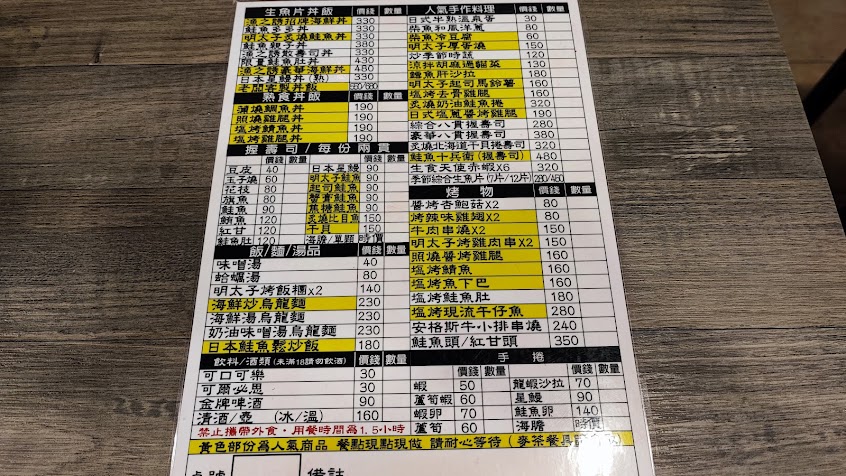 生魚片丼飯 價錢 數量
漁之誘招牌海鮮丼 330
鮭魚多多丼 330
明太子炙燒鮭魚丼 330
鮭魚親子丼 380
漁之誘散壽司丼 330
限量鮭魚肚丼 430
漁之誘豪華海鮮丼 480
日本星鰻丼(熟) 330
老闆客製丼飯 580/680
熟食丼飯 價錢 數量
蒲燒鯛魚丼 190
照燒雞腿丼 190
塩烤鯖魚丼 190
塩烤雞腿丼 190
握壽司/每份兩貫
價錢 數量 價錢 數量
豆皮 40 日本星鰻 90
玉子燒 60 明太子鮭魚 90
花枝 80 起司鮭魚 90
旗魚 80 蟹膏鮭魚 90
鮭魚 90 焦糖鮭魚 90
鮪魚 120 炙燒比目魚 150
紅甘 120 干貝 150
鮭魚肚 120 海膽/單顆 時價
飯/麵/湯品 價錢 數量
味噌湯 40
蛤蠣湯 80
明太子烤飯糰x2 140
海鮮炒烏龍麵 230
海鮮湯烏龍麵 230
奶油味噌湯烏龍麵 230
日本鮭魚鬆炒飯 180
飲料/酒類(未滿18請勿飲酒) 價錢 數量
可口可樂 30
可爾必思 30
金牌啤酒 90
清酒/壺 (冰/溫) 160
禁止攜帶外食,用餐時間為1.5小時
人氣手作料理 價錢 數量
日式半熟溫泉蛋 30
柴魚和風洋蔥 80
柴魚冷豆腐 60
明太子厚蛋燒 150
炒季節時蔬 120
涼拌胡麻過貓菜 130
鱈魚肝沙拉 180
明太子起司馬鈴薯 160
塩烤去骨雞腿 160
炙燒奶油鮭魚捲 320
日式塩蔥醬烤雞腿 190
綜合八貫握壽司 280
豪華八貫握壽司 380
炙燒北海道干貝捲壽司 320
鮭魚十兵衛(握壽司) 480
生食天使赤蝦X6 320
季節綜合生魚片(7片/12片) 280/460
烤物 價錢 數量
醬烤杏鮑菇X2 80
烤辣味雞翅X2 80
牛肉串燒X2 150
明太子烤雞肉串X2 150
照燒醬烤雞腿 160
塩烤鯖魚 160
塩烤魚下巴 160
塩烤鮭魚肚 180
塩烤現流午仔魚 280
安格斯牛小排串燒 240
鮭魚頭/紅甘頭 350
手捲
價錢 數量 價錢 數量
蝦 50 龍蝦沙拉 70
蘆筍蝦 60 星鰻 90
蝦卵 70 鮭魚卵 140
蘆筍 60 海膽 時價
黃色部份為人氣商品 餐點現點現做 請耐心等待(麥茶餐具
桌號 備註